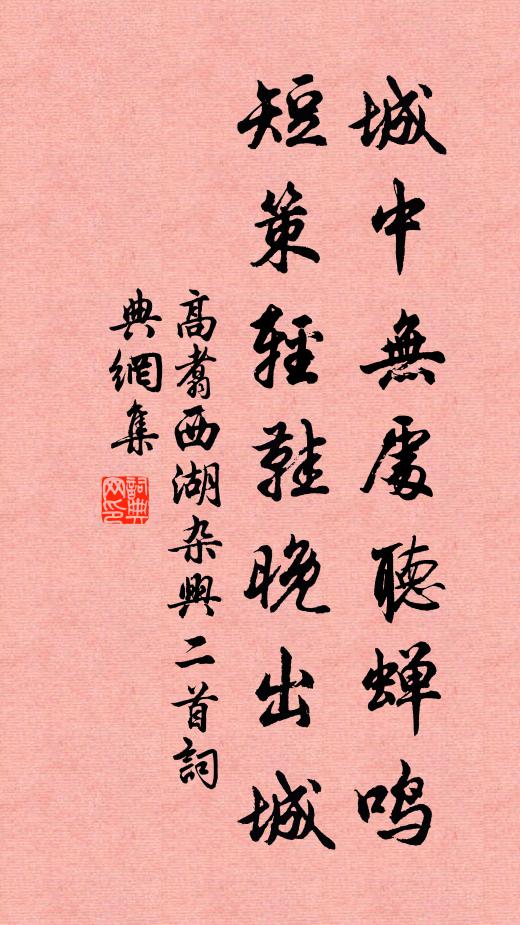 城中無處聽蝉鸣
短策輕鞋晚出城
高翥西湖杂興二首詞
典網集
詞典网印